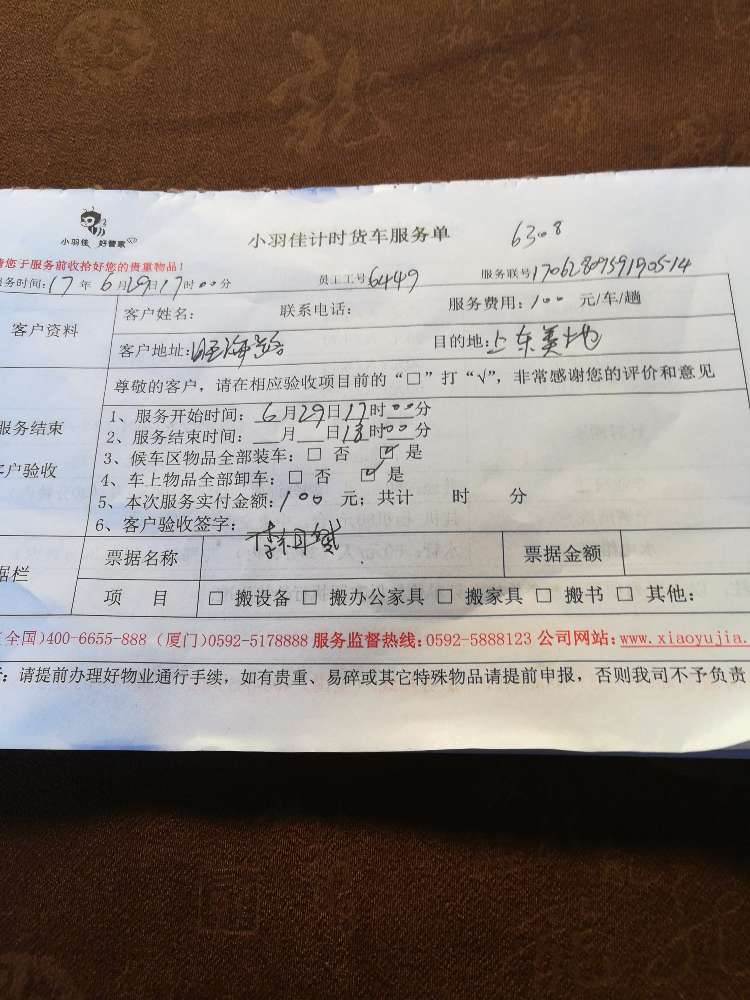 小羽佳 好管家
小羽佳计时货车服务单 6308
请您于服务前收拾好您的贵重物品！
务时间：17年6月29日17时00分 员工工号6449 服务联号1706280959190514
客户资料
客户姓名： 联系电话： 服务费用：100 元/车/趟
客户地址： 目的地：上东美地
尊敬的客户，请在相应验收项目前的“□”打“√”，非常感谢您的评价和意见
服务结束
客户验收
1、服务开始时间：6月29日17时00分
2、服务结束时间：__月__日18时00分
3、候车区物品全部装车：□ 否 ☑ 是
4、车上物品全部卸车：□ 否 ☑ 是
5、本次服务实付金额：100 元；共计 时 分
6、客户验收签字：
据栏
票据名称 票据金额
项 目 □ 搬设备 □ 搬办公家具 □ 搬家具 □ 搬书 □ 其他：
(全国)400-6655-888 (厦门)0592-5178888 服务监督热线：0592-5888123 公司网站：www.xiaoyujia.
：请提前办理好物业通行手续，如有贵重、易碎或其它特殊物品请提前申报，否则我司不予负责